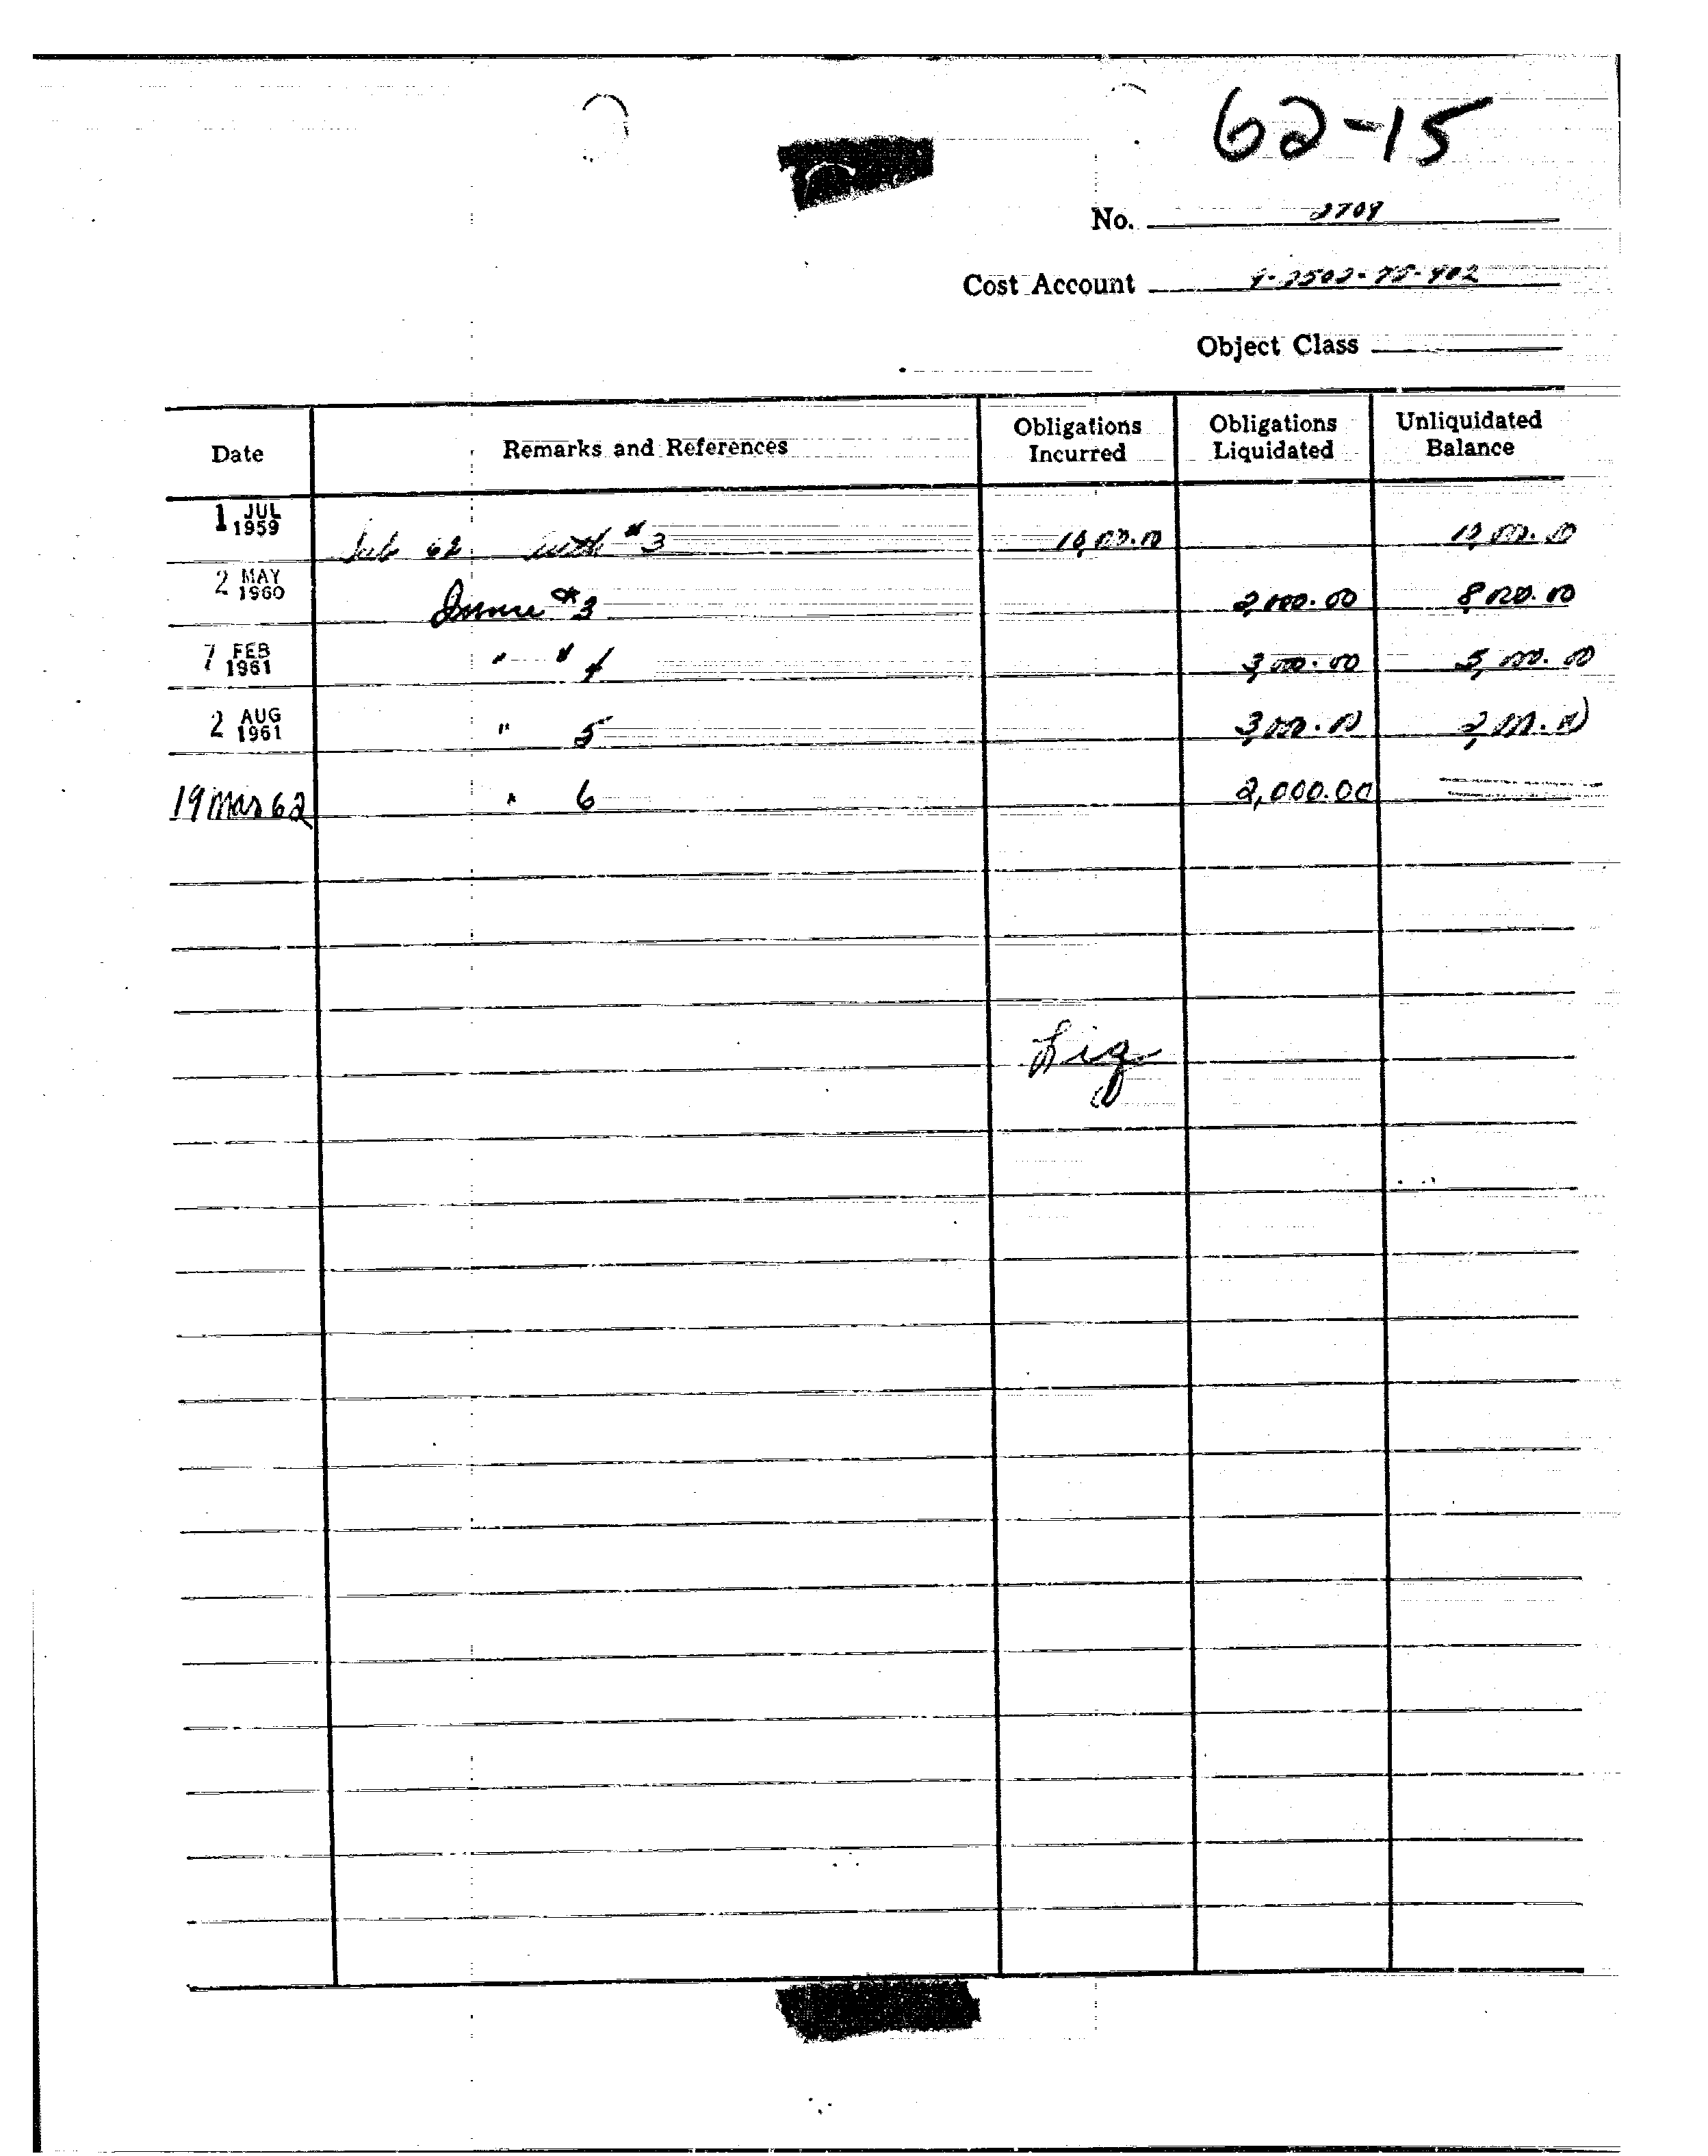 62-15
No. 2709
Cost Account
Object Class
Date Remarks and References Obligations Incurred Obligations Liquidated Unliquidated Balance
1 JUL 1959 Sub 62 with #3 10,000.00 10,000.00
2 MAY 1960 Invoice #3 2,000.00 8,000.00
7 FEB 1961 " " 4 3,000.00 5,000.00
2 AUG 1961 " 5 3,000.00 2,000.00
19 Mar 62 " 6 2,000.00
Liq